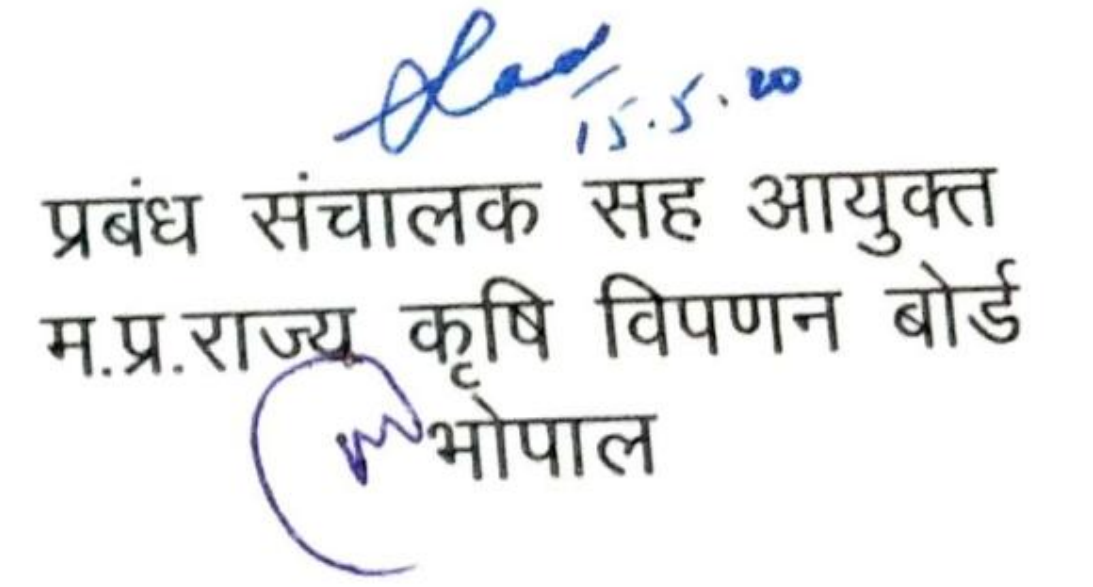 15.5.20
प्रबंध संचालक सह आयुक्त
म.प्र.राज्य कृषि विपणन बोर्ड
भोपाल